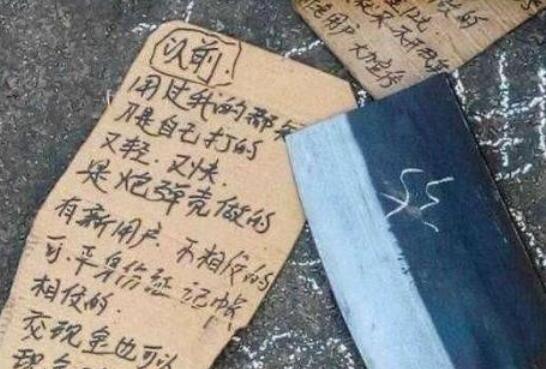 以前.
用过我的都知
是自己打的
又轻.又快.
是炮弹壳做的
有新用户.不相信的
可.平身份证记帐
相信的.
交现金也可以
不开现
用户大力宣传